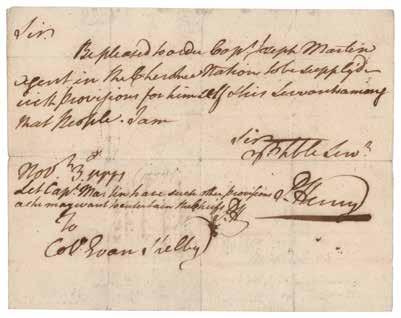 Sir
Be pleased to order Capt. Joseph Martin
Agent in the Cherokee Nation to be supplyd
with Provisions for himself & his Servants among
that People. I am
Sir
Yr. hble Servt.
P. Henry
Novr. 3d
Let Capt. Martin have such other provisions
as he may want to entertain the Chiefs P H
To
Colo. Evan Shelby